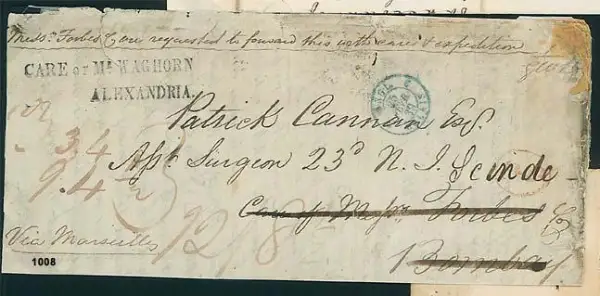 Messrs. Forbes & Co are requested to forward this with care & expedition
CARE OF Mr. WAGHORN
ALEXANDRIA.
Patrick Cannan Esq.
Asst. Surgeon 23d N. I. Scinde
Care of Messrs Forbes & Co
Bombay
3,4
9.4
Via Marseilles
1008